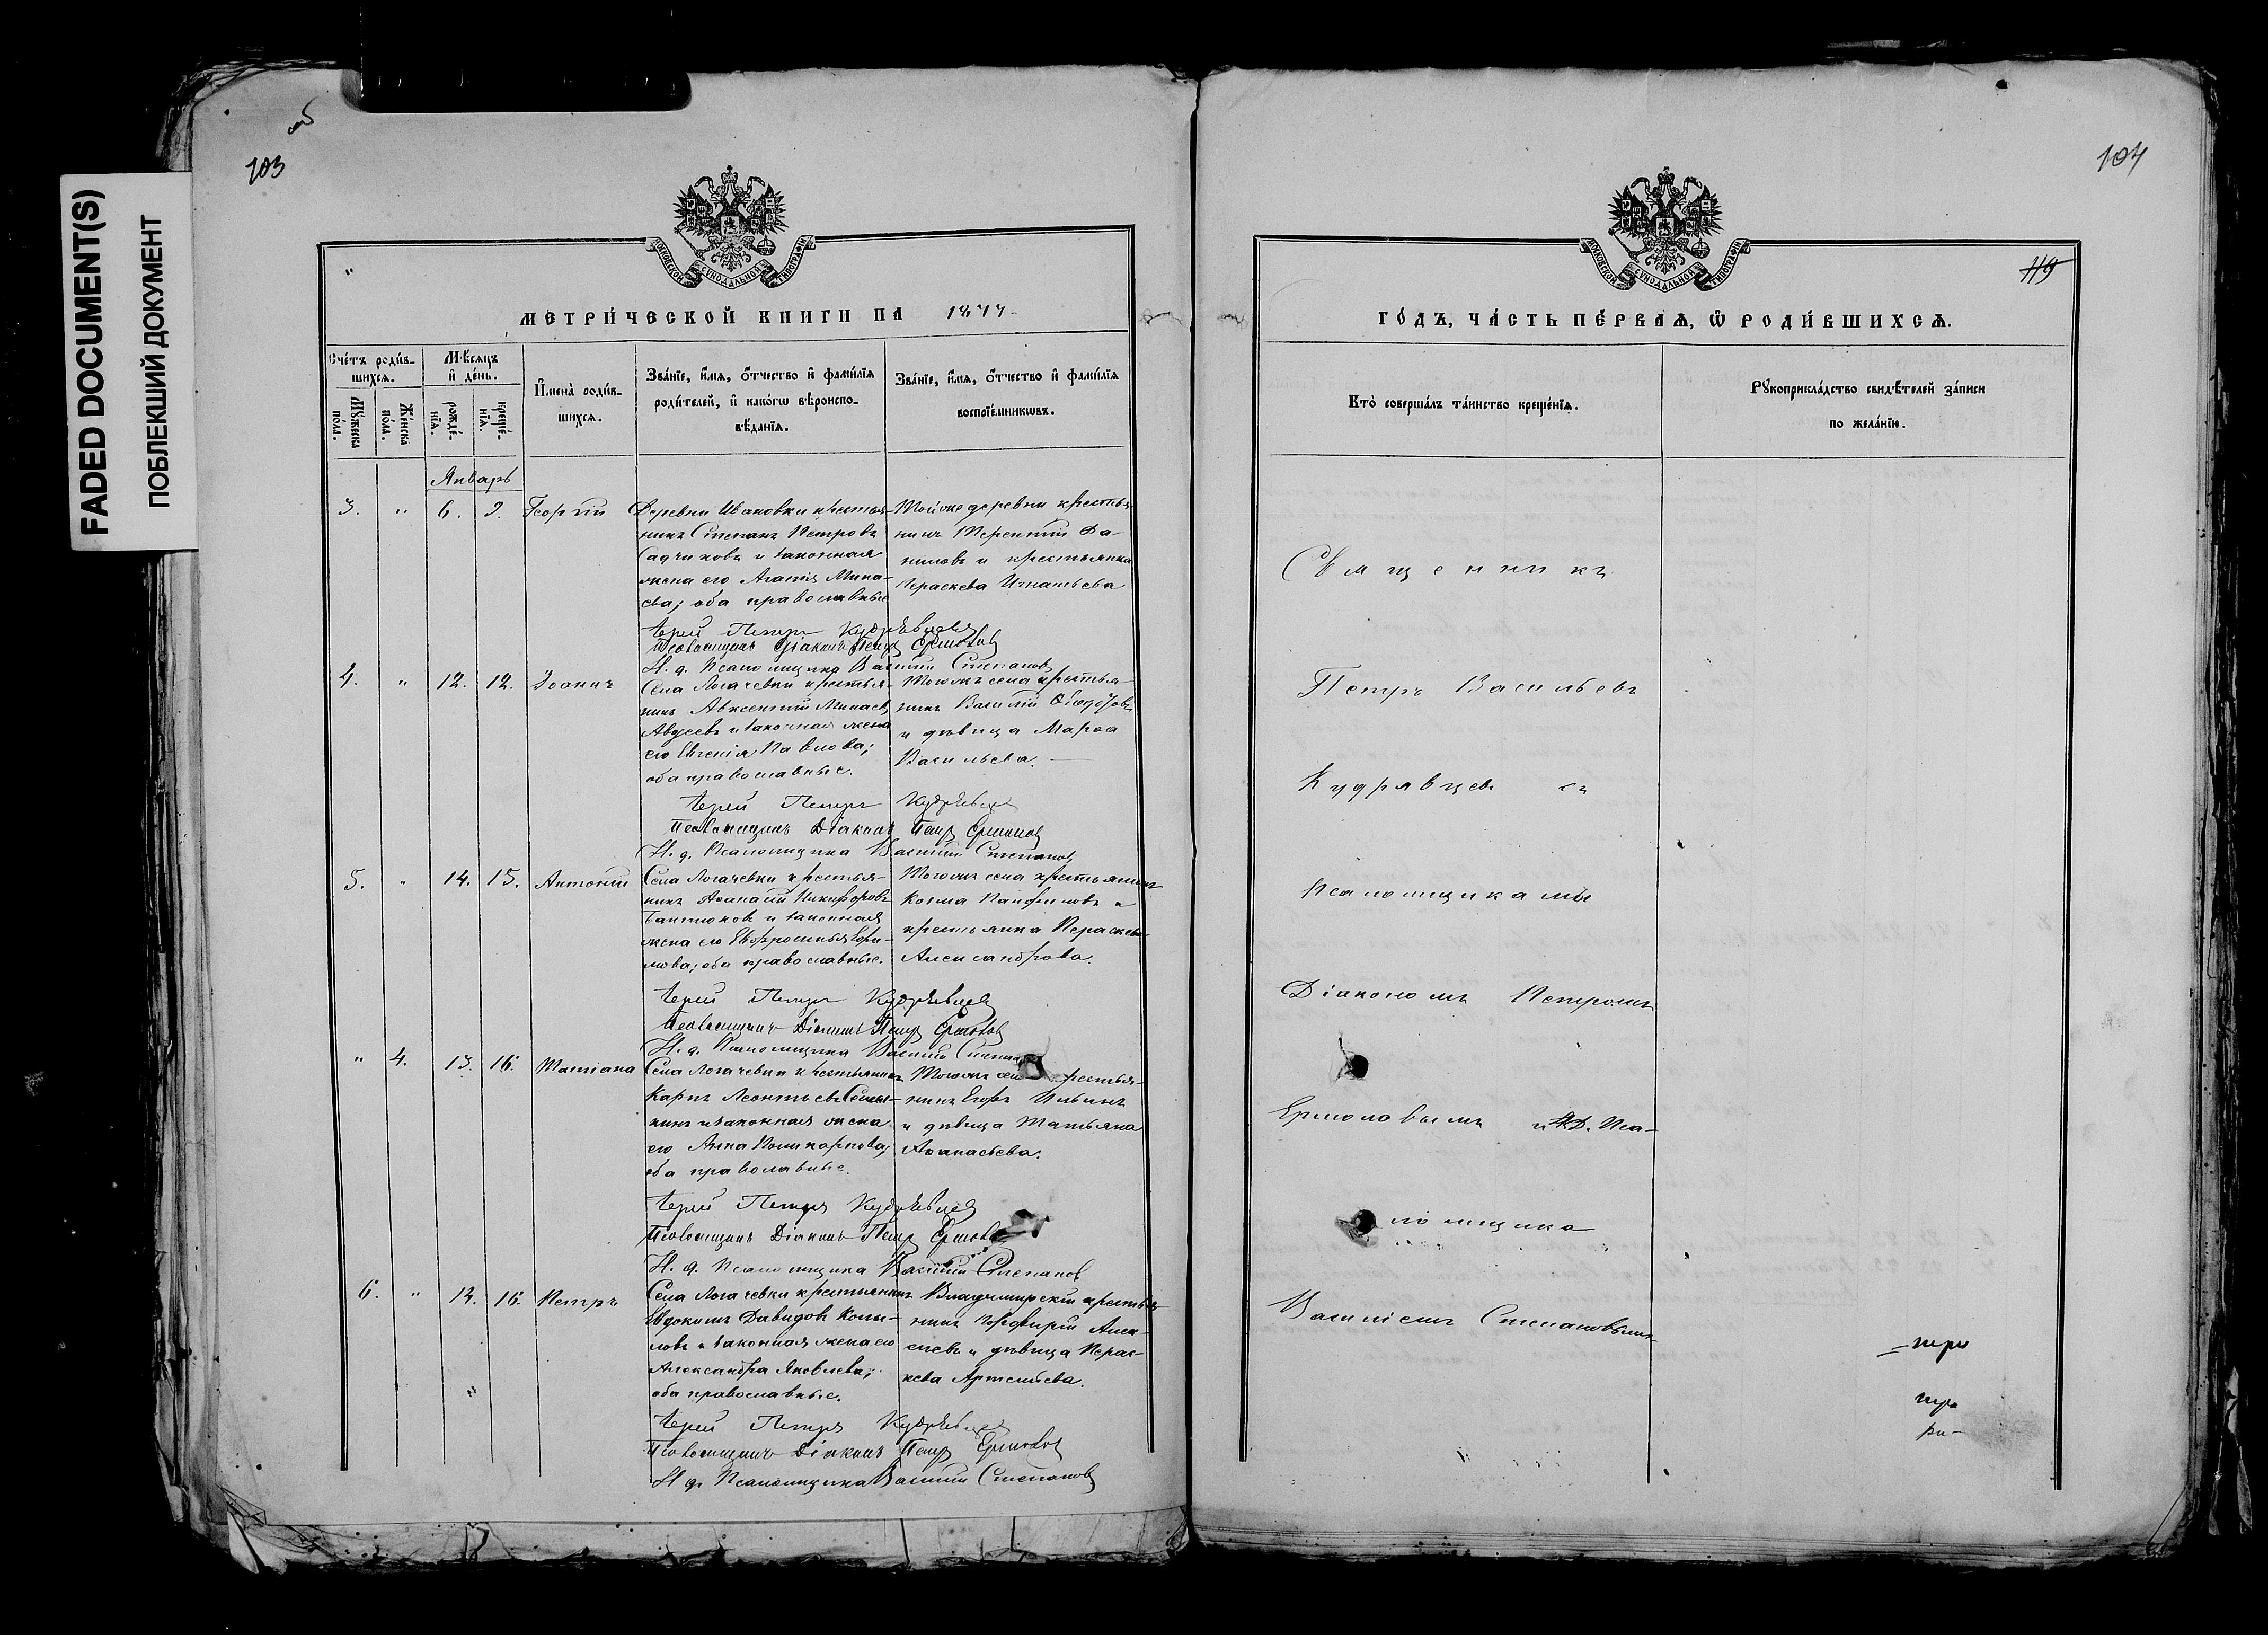 FADED DOCUMENT(S)
ПОБЛЕКШИЙ ДОКУМЕНТ
103
МОСКОВСКОЙ СѴНОДАЛЬНОЙ ТИПОГРАФІИ
МЕТРИ́ЧЕСКОЙ КНИГИ НА 1877
Сче́тъ роди́в-
шихсѧ.
Мꙋ́жеска
по́ла.
Же́нска
по́ла.
Мѣ́сѧцъ
и҆ де́нь.
рожде́-
нїѧ.
креще́-
нїѧ.
И҆мена̀ роди́в-
шихсѧ.
Зва́нїе, и҆́мѧ, о҆́тчество и҆ фами́лїѧ
роди́телей, и҆ како́гѡ вѣроиспо-
вѣ́данїѧ.
Зва́нїе, и҆́мѧ, о҆́тчество и҆ фами́лїѧ
воспрїе́мникѡвъ.
Январь
3. " 6. 9. Георгій
Деревни Ивановки крестья-
нинъ Степанъ Петровъ
Садчиковъ и законная
жена его Агапія Мина-
ева; оба православные
Тойже деревни крестья-
нинъ Терентій Да-
ниловъ и крестьянка
Параскева Игнатьева
Іерей Петръ Кудрявцевъ
Псаломщикъ Діаконъ Петръ Ермоловъ
И. д. Псаломщика Василій Степановъ
4. " 12. 12. Іоаннъ
Села Логачевки крестья-
нинъ Авксентій Минаевъ
Авдеевъ и законная жена
его Евгенія Павлова;
оба православные.
Тогожъ села крестья-
нинъ Василій
и дѣвица Марѳа
Васильева.
Іерей Петръ Кудрявцевъ
Псаломщикъ Діаконъ Петръ Ермоловъ
И. д. Псаломщика Василій Степановъ
5. " 14. 15. Антоній
Села Логачевки крестья-
нинъ Аѳанасій Никифоровъ
и законная
жена его Евфросинья
оба православные.
Тогожъ села крестьянинъ
Козма Панфиловъ и
крестьянка Параскева
Александрова.
Іерей Петръ Кудрявцевъ
Псаломщикъ Діаконъ Петръ Ермоловъ
И. д. Псаломщика Василій Степановъ
" 4. 13. 16. Татіана
Села Логачевки крестьянинъ
Карпъ Леонтьевъ
и законная жена
его Анна Поликарпова;
оба православные.
Тогожъ села крестья-
нинъ Егоръ Ильинъ
и дѣвица Татьяна
Аѳанасьева.
Іерей Петръ Кудрявцевъ
Псаломщикъ Діаконъ Петръ Ермоловъ
И. д. Псаломщика Василій Степановъ
6. " 14. 16. Петръ
Села Логачевки крестьянинъ
Евдокимъ Давидовъ Копы-
ловъ и законная жена его
Александра Яковлева;
оба православные.
Владимирскій крестья-
нинъ Порфирій Алек-
сѣевъ и дѣвица Парас-
кева Артемьева.
Іерей Петръ Кудрявцевъ
Псаломщикъ Діаконъ Петръ Ермоловъ
И. д. Псаломщика Василій Степановъ
104
119
МОСКОВСКОЙ СѴНОДАЛЬНОЙ ТИПОГРАФІИ
ГО́ДЪ, ЧА́СТЬ ПЕ́РВАѦ, Ѡ҆ РОДИ́ВШИХСѦ.
Кто̀ соверша́лъ та́инство креще́нїѧ.
Рꙋкоприкла́дство свидѣ́телей за́писи
по жела́нїю.
Священникъ
Петръ Васильевъ
Кудрявцевъ съ
Псаломщиками
Діакономъ Петромъ
Ермоловымъ и И.Д. Пса-
ломщика
Василіемъ Степановымъ